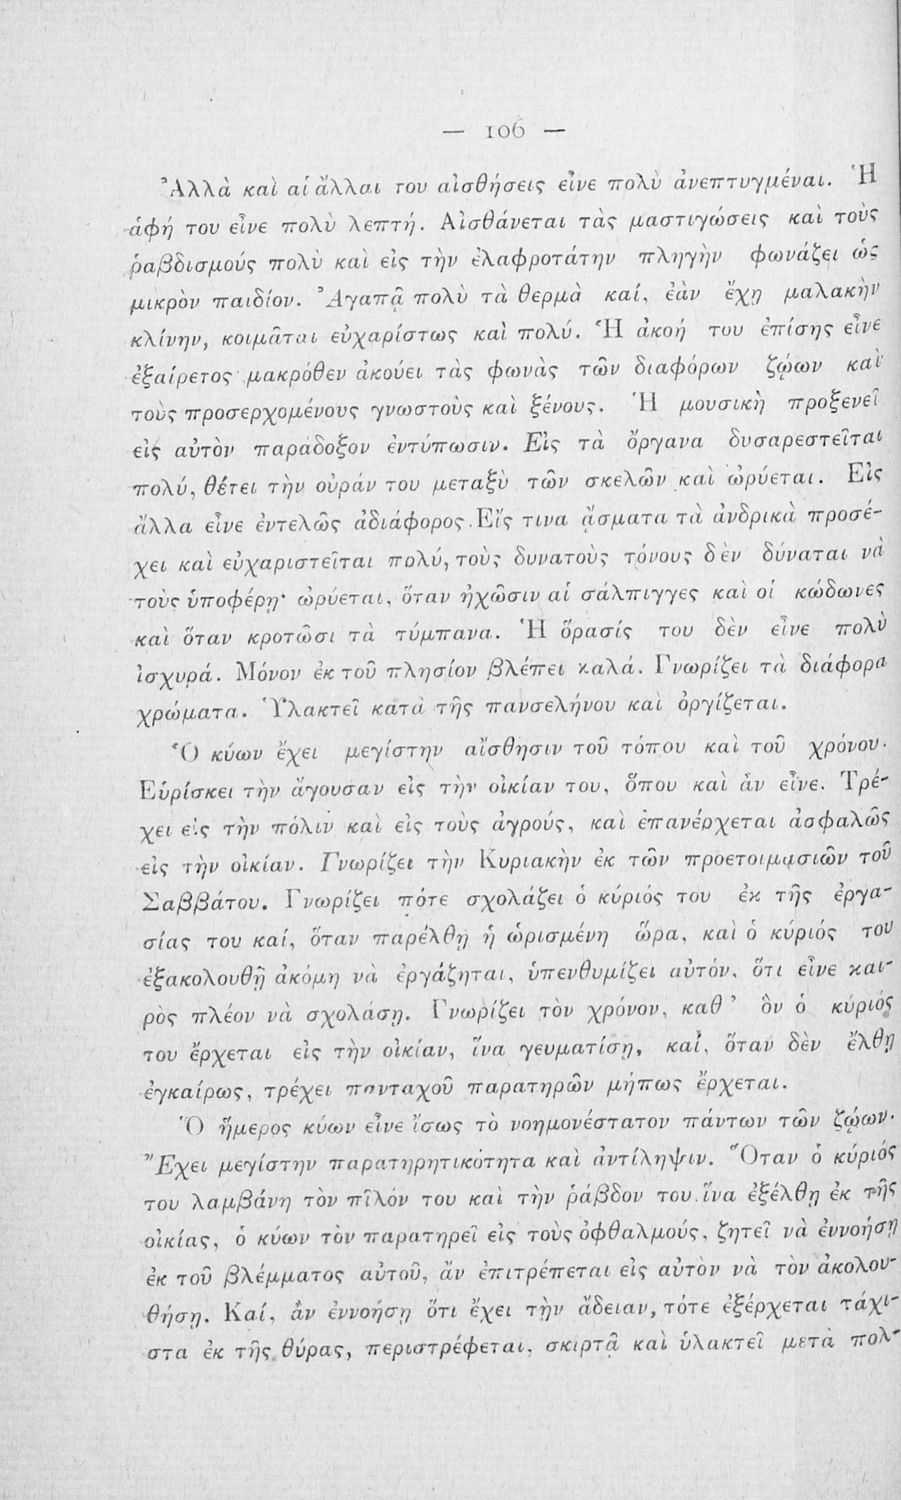 — 106 —
Ἀλλὰ καὶ αἱ ἄλλαι του αἰσθήσεις εἶνε πολὺ ἀνεπτυγμέναι. Ἡ
ἁφή του εἶνε πολὺ λεπτή. Αἰσθάνεται τὰς μαστιγώσεις καὶ τοὺς
ῥαβδισμούς πολὺ καὶ εἰς τὴν ἐλαφροτάτην πληγὴν φωνάζει ὡς
μικρὸν παιδίον. Ἀγαπᾷ πολὺ τὰ θερμὰ καί, ἐὰν ἔχῃ μαλακὴν
κλίνην, κοιμᾶται εὐχαρίστως καὶ πολύ. Ἡ ἀκοή του ἐπίσης εἶνε
ἐξαίρετος· μακρόθεν ἀκούει τὰς φωνὰς τῶν διαφόρων ζῴων καὶ
τοὺς προσερχομένους γνωστοὺς καὶ ξένους. Ἡ μουσικὴ προξενεῖ
εἰς αὐτὸν παράδοξον ἐντύπωσιν. Εἰς τὰ ὄργανα δυσαρεστεῖται
πολύ, θέτει τὴν οὐράν του μεταξὺ τῶν σκελῶν καὶ ὠρύεται. Εἰς
ἄλλα εἶνε ἐντελῶς ἀδιάφορος. Εἴς τινα ᾄσματα τὰ ἀνδρικὰ προσέ-
χει καὶ εὐχαριστεῖται πολύ, τοὺς δυνατοὺς τόνους δὲν δύναται νὰ
τοὺς ὑποφέρῃ· ὠρύεται, ὅταν ἠχῶσιν αἱ σάλπιγγες καὶ οἱ κώδωνες
καὶ ὅταν κροτῶσι τὰ τύμπανα. Ἡ ὅρασίς του δὲν εἶνε πολὺ
ἰσχυρά. Μόνον ἐκ τοῦ πλησίον βλέπει καλά. Γνωρίζει τὰ διάφορα
χρώματα. Ὑλακτεῖ κατὰ τῆς πανσελήνου καὶ ὀργίζεται.
Ὁ κύων ἔχει μεγίστην αἴσθησιν τοῦ τόπου καὶ τοῦ χρόνου.
Εὑρίσκει τὴν ἄγουσαν εἰς τὴν οἰκίαν του, ὅπου καὶ ἂν εἶνε. Τρέ-
χει εἰς τὴν πόλιν καὶ εἰς τοὺς ἀγρούς, καὶ ἐπανέρχεται ἀσφαλῶς
εἰς τὴν οἰκίαν. Γνωρίζει τὴν Κυριακὴν ἐκ τῶν προετοιμασιῶν τοῦ
Σαββάτου. Γνωρίζει πότε σχολάζει ὁ κύριός του ἐκ τῆς ἐργα-
σίας του καί, ὅταν παρέλθῃ ἡ ὡρισμένη ὥρα, καὶ ὁ κύριός του
ἐξακολουθῇ ἀκόμη νὰ ἐργάζηται, ὑπενθυμίζει αὐτόν, ὅτι εἶνε και-
ρὸς πλέον νὰ σχολάσῃ. Γνωρίζει τὸν χρόνον, καθ’ ὃν ὁ κύριός
του ἔρχεται εἰς τὴν οἰκίαν, ἵνα γευματίσῃ, καί, ὅταν δὲν ἔλθῃ
ἐγκαίρως, τρέχει πανταχοῦ παρατηρῶν μήπως ἔρχεται.
Ὁ ἥμερος κύων εἶνε ἴσως τὸ νοημονέστατον πάντων τῶν ζῴων.
Ἔχει μεγίστην παρατηρητικότητα καὶ ἀντίληψιν. Ὅταν ὁ κύριός
του λαμβάνῃ τὸν πῖλόν του καὶ τὴν ῥάβδον του ἵνα ἐξέλθῃ ἐκ τῆς
οἰκίας, ὁ κύων τὸν παρατηρεῖ εἰς τοὺς ὀφθαλμούς, ζητεῖ νὰ ἐννοήσῃ
ἐκ τοῦ βλέμματος αὐτοῦ, ἂν ἐπιτρέπεται εἰς αὐτὸν νὰ τὸν ἀκολου-
θήσῃ. Καί, ἂν ἐννοήσῃ ὅτι ἔχει τὴν ἄδειαν, τότε ἐξέρχεται τάχι-
στα ἐκ τῆς θύρας, περιστρέφεται, σκιρτᾷ καὶ ὑλακτεῖ μετὰ πολ-